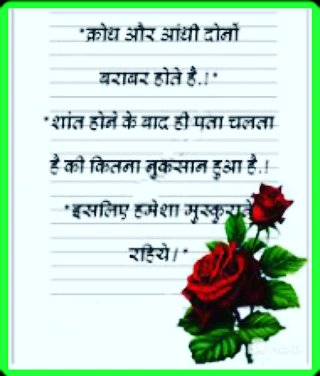 *क्रोध और आंधी दोनों
बराबर होते है.!*
*शांत होने के बाद ही पता चलता
है की कितना नुकसान हुआ है.!
*इसलिए हमेशा मुस्कुराते
रहिये!*